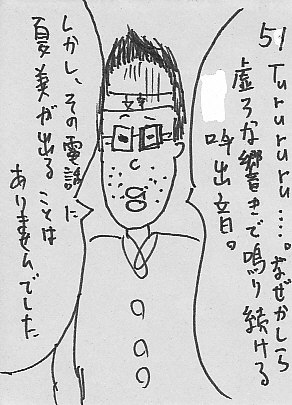 51
Tururururu....。なぜかしら
虚ろな響きで鳴り続ける
呼出音。
しかし、その電話に
夏美が出ることは
ありませんでした